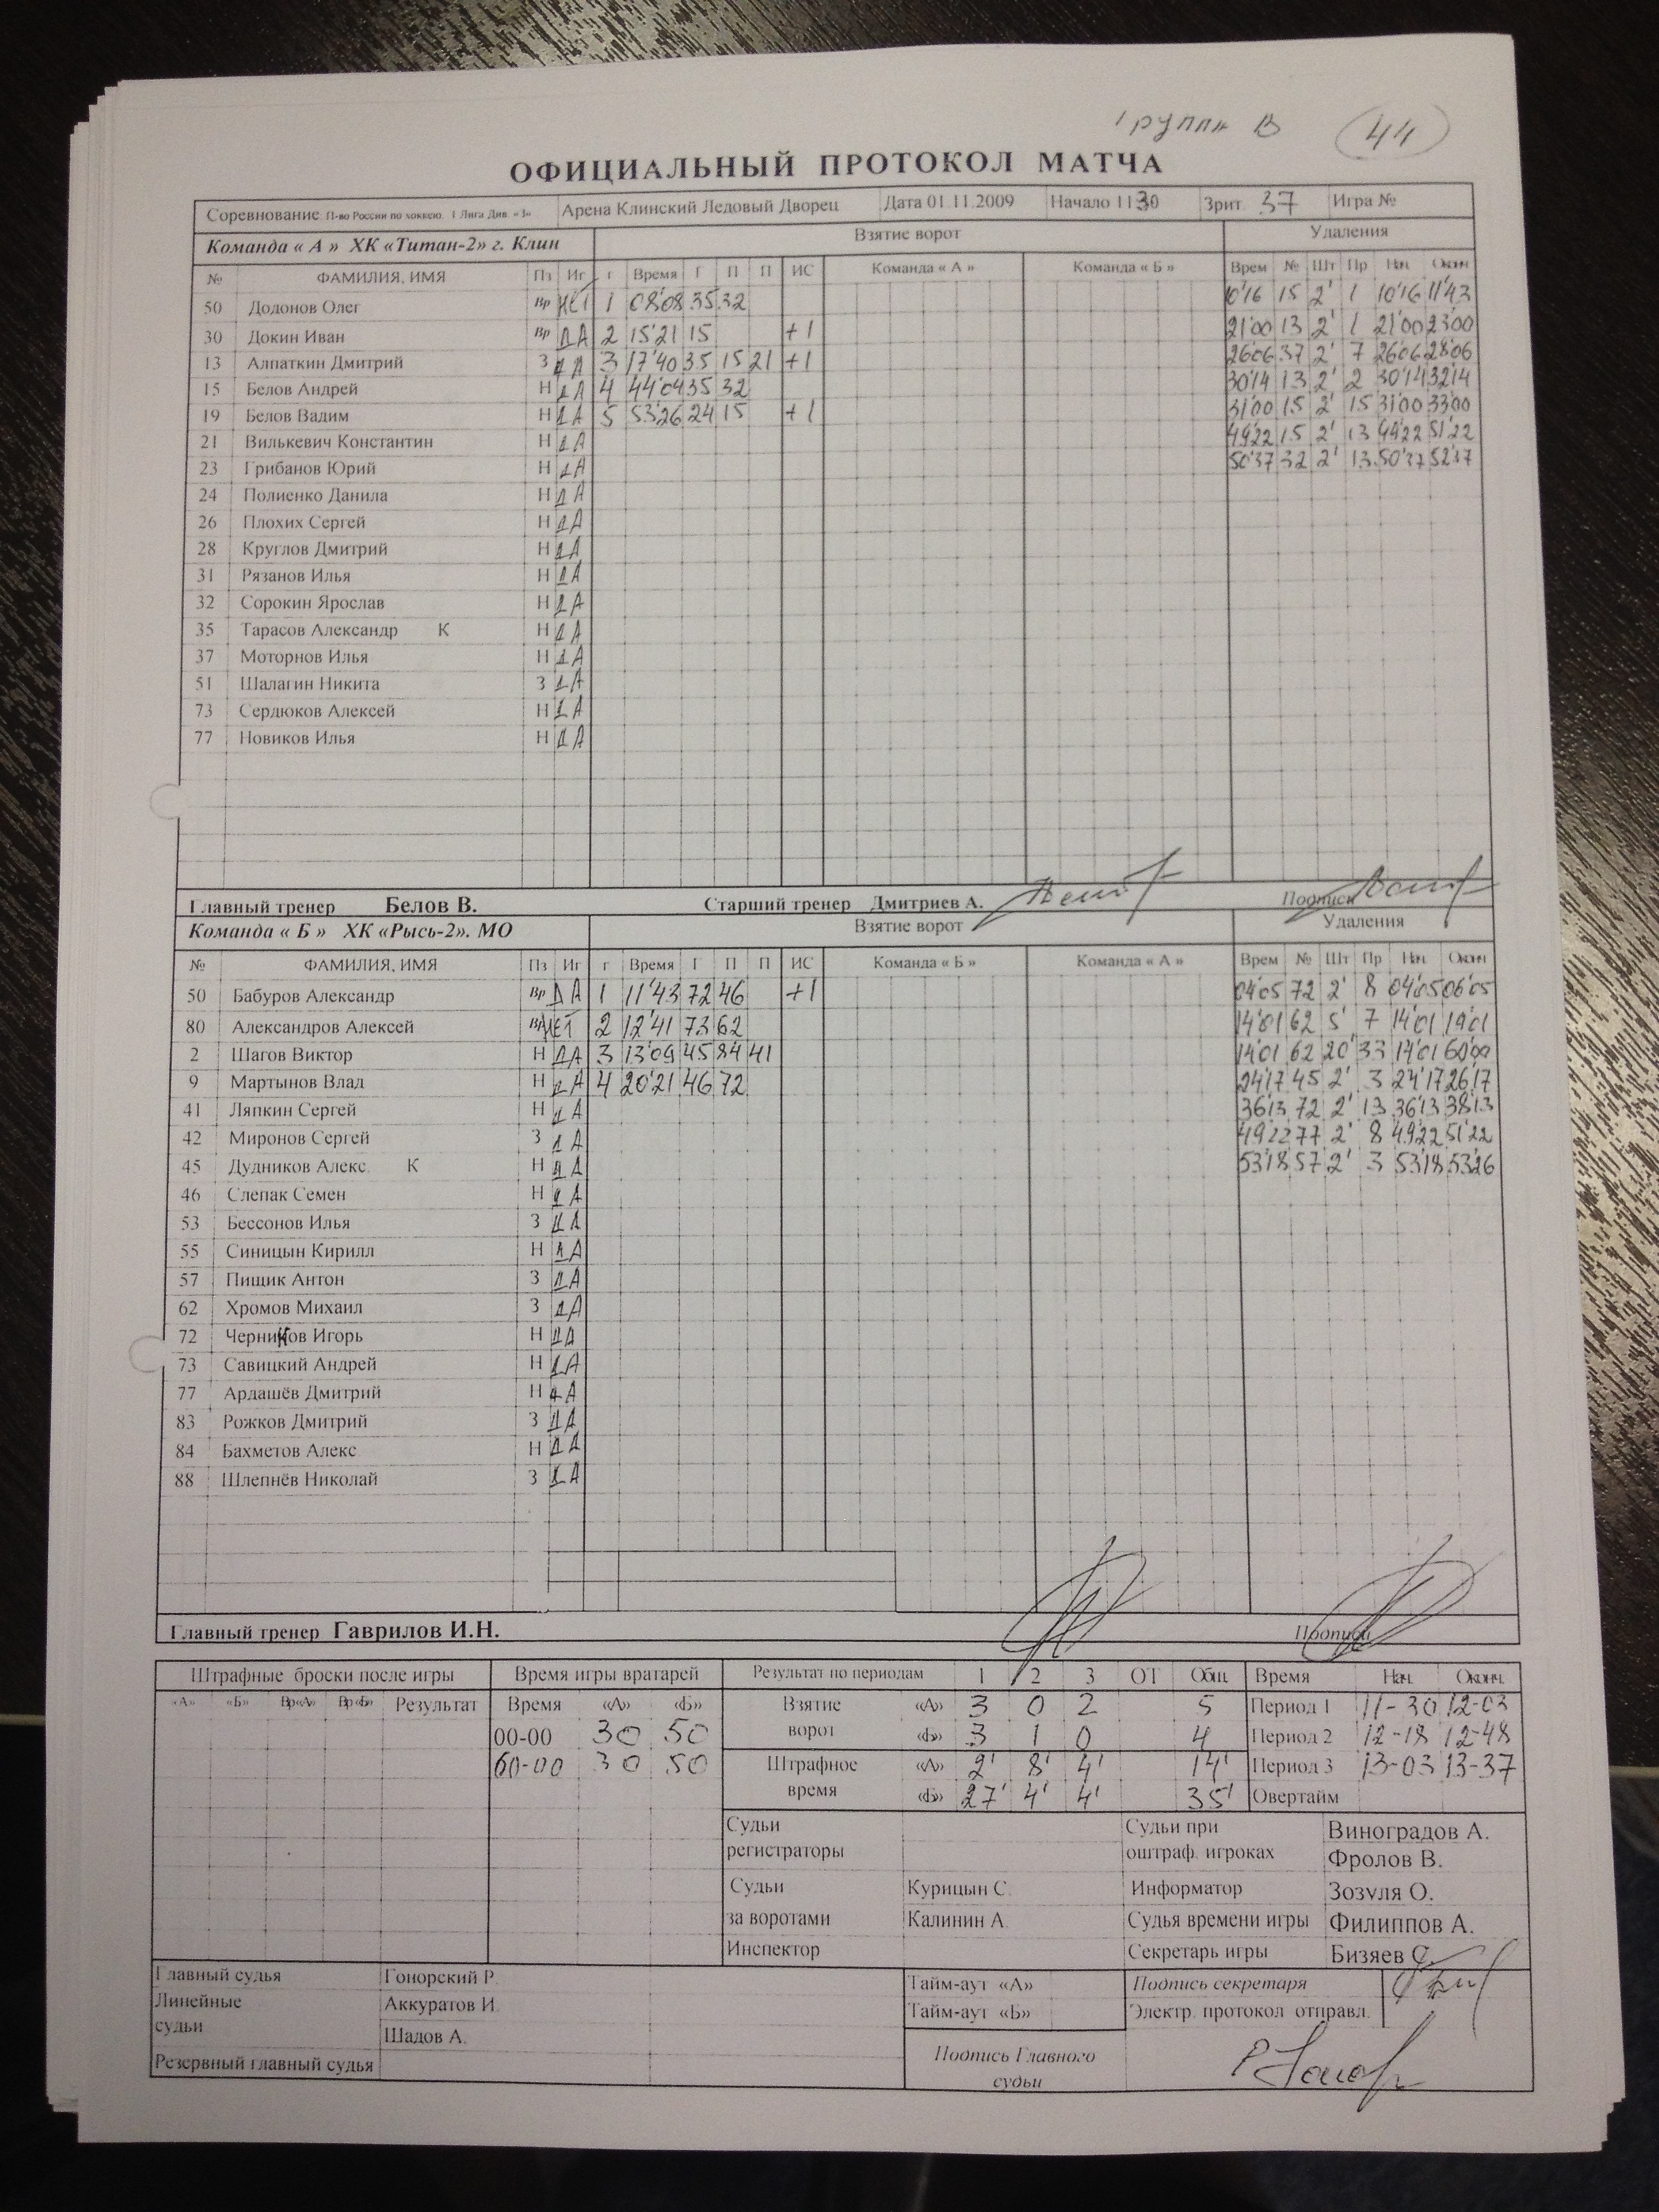 Группа В 44
ОФИЦИАЛЬНЫЙ ПРОТОКОЛ МАТЧА
Соревнование П-во России по хоккею. 1 Лига Див. «3» Арена Клинский Ледовый Дворец Дата 01.11.2009 Начало 1130 Зрит. 37 Игра №
Команда « А » ХК «Титан-2» г. Клин Взятие ворот Удаления
№ ФАМИЛИЯ, ИМЯ Пз Иг г Время Г П П ИС Команда « А » Команда « Б » Врем № Шт Пр Нач. Оконч
50 Додонов Олег Вр НЕТ 1 08'08 35 32 10'16 15 2' 1 10'16 11'43
30 Докин Иван Вр ДА 2 15'21 15 +1 21'00 13 2' 1 21'00 23'00
13 Алпаткин Дмитрий З ДА 3 17'40 35 15 21 +1 26'06 37 2' 7 26'06 28'06
15 Белов Андрей Н ДА 4 44'04 35 32 30'14 13 2' 2 30'14 32'14
19 Белов Вадим Н ДА 5 53'26 24 15 +1 31'00 15 2' 15 31'00 33'00
21 Вилькевич Константин Н ДА 49'22 15 2' 13 49'22 51'22
23 Грибанов Юрий Н ДА 50'37 32 2' 13 50'37 52'37
24 Полиенко Данила Н ДА
26 Плохих Сергей Н ДА
28 Круглов Дмитрий Н ДА
31 Рязанов Илья Н ДА
32 Сорокин Ярослав Н ДА
35 Тарасов Александр К Н ДА
37 Моторнов Илья Н ДА
51 Шалагин Никита З ДА
73 Сердюков Алексей Н ДА
77 Новиков Илья Н ДА
Главный тренер Белов В. Старший тренер Дмитриев А. Подписи
Команда « Б » ХК «Рысь-2». МО Взятие ворот Удаления
№ ФАМИЛИЯ, ИМЯ Пз Иг г Время Г П П ИС Команда « Б » Команда « А » Врем № Шт Пр Нач. Оконч
50 Бабуров Александр Вр ДА 1 11'43 72 46 +1 04'05 72 2' 8 04'05 06'05
80 Александров Алексей Вр НЕТ 2 12'41 73 62 14'01 62 5' 7 14'01 19'01
2 Шагов Виктор Н ДА 3 13'09 45 84 41 14'01 62 20' 33 14'01 60'00
9 Мартынов Влад Н ДА 4 20'21 46 72 24'17 45 2' 3 24'17 26'17
41 Ляпкин Сергей Н ДА 36'13 72 2' 13 36'13 38'13
42 Миронов Сергей З ДА 49'22 77 2' 8 49'22 51'22
45 Дудников Алекс. К Н ДА 53'18 57 2' 3 53'18 53'26
46 Слепак Семен Н ДА
53 Бессонов Илья З ДА
55 Синицын Кирилл Н ДА
57 Пищик Антон З ДА
62 Хромов Михаил З ДА
72 Черников Игорь Н ДА
73 Савицкий Андрей Н ДА
77 Ардашёв Дмитрий Н ДА
83 Рожков Дмитрий З ДА
84 Бахметов Алекс. Н ДА
88 Шлепнёв Николай З ДА
Главный тренер Гаврилов И.Н. Подписи
Штрафные броски после игры Время игры вратарей Результат по периодам 1 2 3 ОТ Общ. Время Нач. Оконч.
«А» «Б» Вр«А» Вр«Б» Результат Время «А» «Б» Взятие ворот «А» 3 0 2 5 Период 1 11-30 12-03
00-00 30 50 «Б» 3 1 0 4 Период 2 12-18 12-48
60-00 30 50 Штрафное время «А» 2' 8' 4' 14' Период 3 13-03 13-37
«Б» 27' 4' 4' 35' Овертайм
Судьи регистраторы Судьи при оштраф. игроках Виноградов А.
Фролов В.
Судьи Курицын С. Информатор Зозуля О.
за воротами Калинин А. Судья времени игры Филиппов А.
Инспектор Секретарь игры Бизяев С.
Главный судья Гонорский Р. Тайм-аут «А» Подпись секретаря
Линейные судьи Аккуратов И. Тайм-аут «Б» Электр. протокол отправл.
Шадов А.
Резервный главный судья Подпись Главного судьи